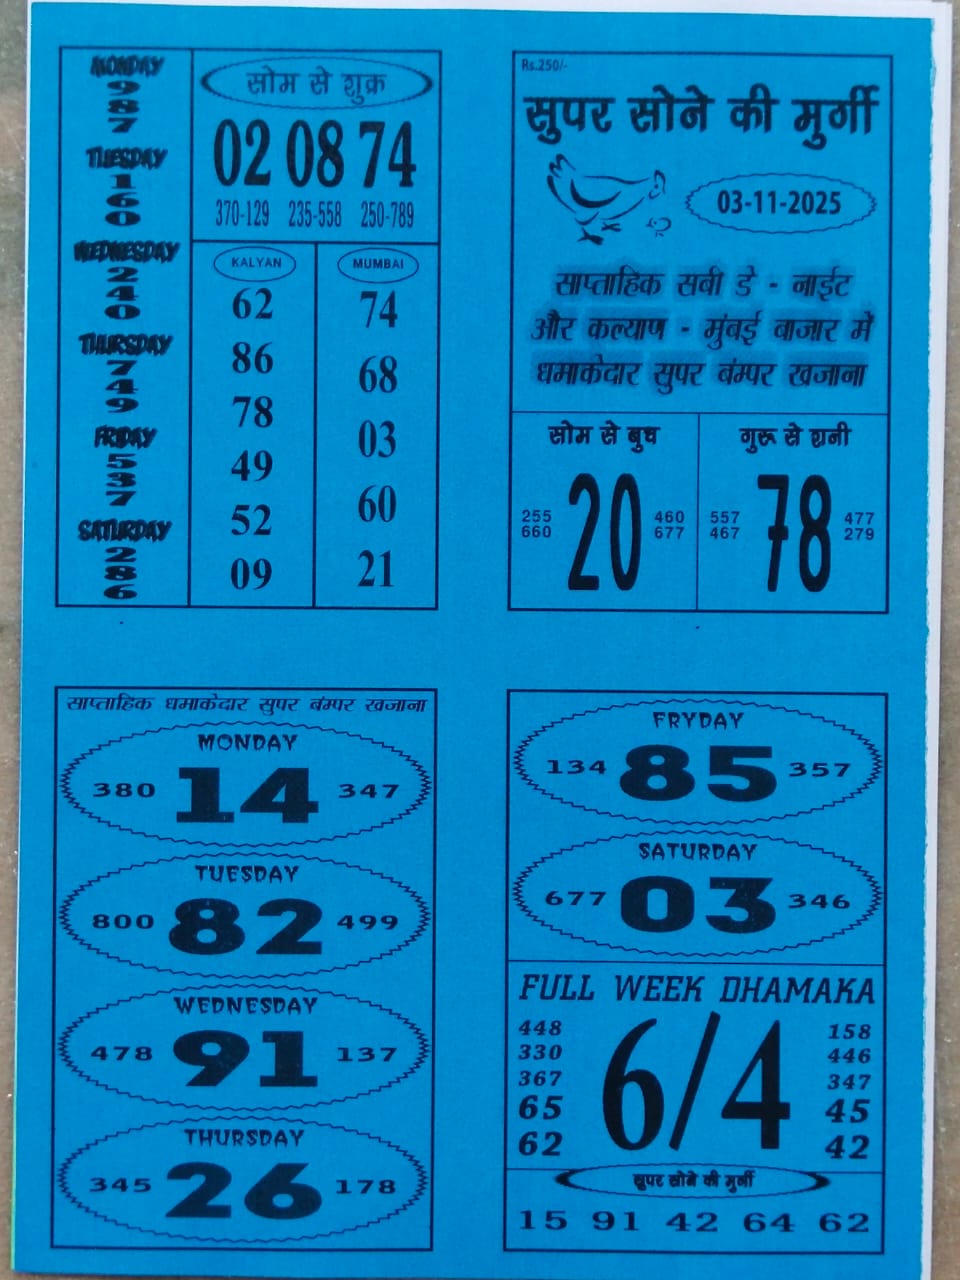 MONDAY
9
8
7
TUESDAY
1
6
0
WEDNESDAY
2
4
0
THURSDAY
7
4
9
FRIDAY
5
3
7
SATURDAY
2
8
6
सोम से शुक्र
02 08 74
370-129 235-558 250-789
KALYAN
62
86
78
49
52
09
MUMBAI
74
68
03
60
21
Rs.250/-
सुपर सोने की मुर्गी
03-11-2025
साप्ताहिक सबी डे - नाईट
और कल्याण - मुंबई बाजार में
धमाकेदार सुपर बंम्पर खजाना
सोम से बुध
255
660
20
460
677
गुरू से शनी
557
467
78
477
279
साप्ताहिक धमाकेदार सुपर बंम्पर खजाना
MONDAY
380 14 347
TUESDAY
800 82 499
WEDNESDAY
478 91 137
THURSDAY
345 26 178
FRYDAY
134 85 357
SATURDAY
677 03 346
FULL WEEK DHAMAKA
448
330
367
65
62
6/4
158
446
347
45
42
सुपर सोने की मुर्गी
15 91 42 64 62